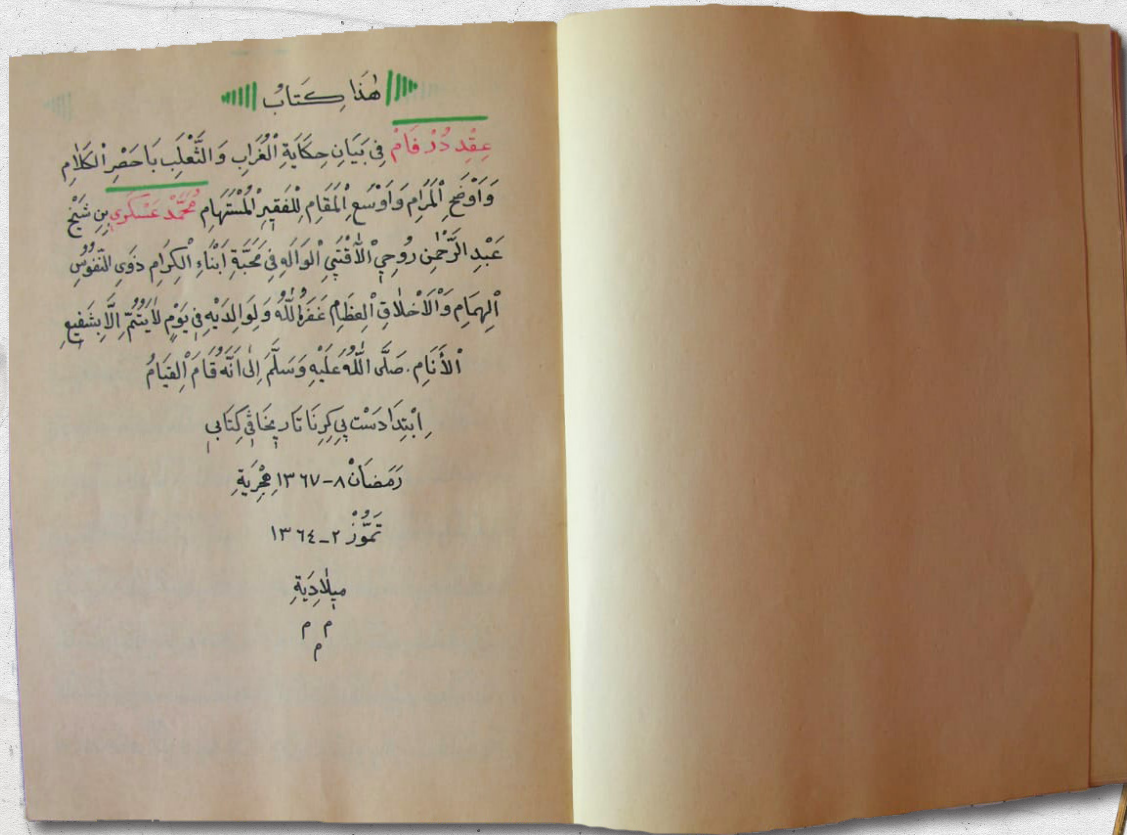 هٰذَا كِتَابُ
عِقْدِ دُرْ فَامْ فِي بَيَانِ حِكَايَةِ الْغُرَابِ وَالثَّعْلَبِ بَاحَصْرِ الْكَلَامِ
وَاَوْضَحِ الْمَرَامِ وَاَوْسَعِ الْمَقَامِ لِلْفَقِيرِ الْمُسْتَهَامِ مُحَمَّدْ عَسْكَرِي بِنِ شَيْخْ
عَبْدِ الرَّحْمٰنِ رُوحِي الْاٰقْتَبِي الْوَالِهِ فِي مَحَبَّةِ اَبْنَاءِ الْكِرَامِ ذَوِي النُّفُوسِ
الْهِمَامِ وَالْاَخْلَاقِ الْعِظَامْ غَفَرَهُ اللّٰهُ وَلِوَالِدَيْهِ فِي يَوْمٍ لَا يَتِمُّ اِلَّا بِشَفِيعِ
الْأَنَامِ . صَلَّى اللّٰهُ عَلَيْهِ وَسَلَّمَ اِلٰى اَنَّهُ قَامَ الْقِيَامُ
اِبْتِدَا دَسْت پِي كِرِنَا تَارِيخَا ڤِي كِتَابِي
رَمَضَانْ ٨-١٣٦٧ هِجْرِيَةِ
تَمُّوزْ ٢-١٣٦٤
مِيلَادِيَةِ
م م
م